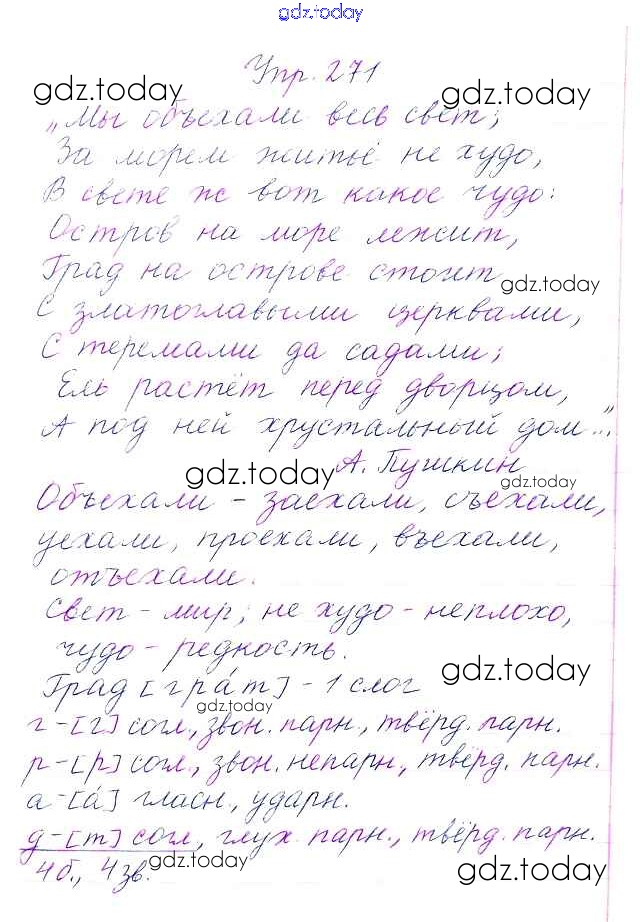 gdz.today
Упр. 271
gdz.today
gdz.today
„Мы объехали весь свет;
За морем житьё не худо,
В свете ж вот какое чудо:
Остров на море лежит,
Град на острове стоит
gdz.today
С златоглавыми церквами,
С теремами да садами;
Ель растёт перед дворцом,
А под ней хрустальный дом..."
А. Пушкин
gdz.today
gdz.today
Объехали – заехали, съехали,
уехали, проехали, въехали,
отъехали.
Свет – мир; не худо – неплохо,
чудо – редкость.
gdz.today
Град [гра́т] – 1 слог
gdz.today
г – [г] согл., звон. парн., твёрд. парн.
р – [р] согл., звон. непарн., твёрд. парн.
а – [а́] гласн., ударн.
д – [т] согл., глух. парн., твёрд. парн.
4 б., 4 зв.
gdz.today
gdz.today